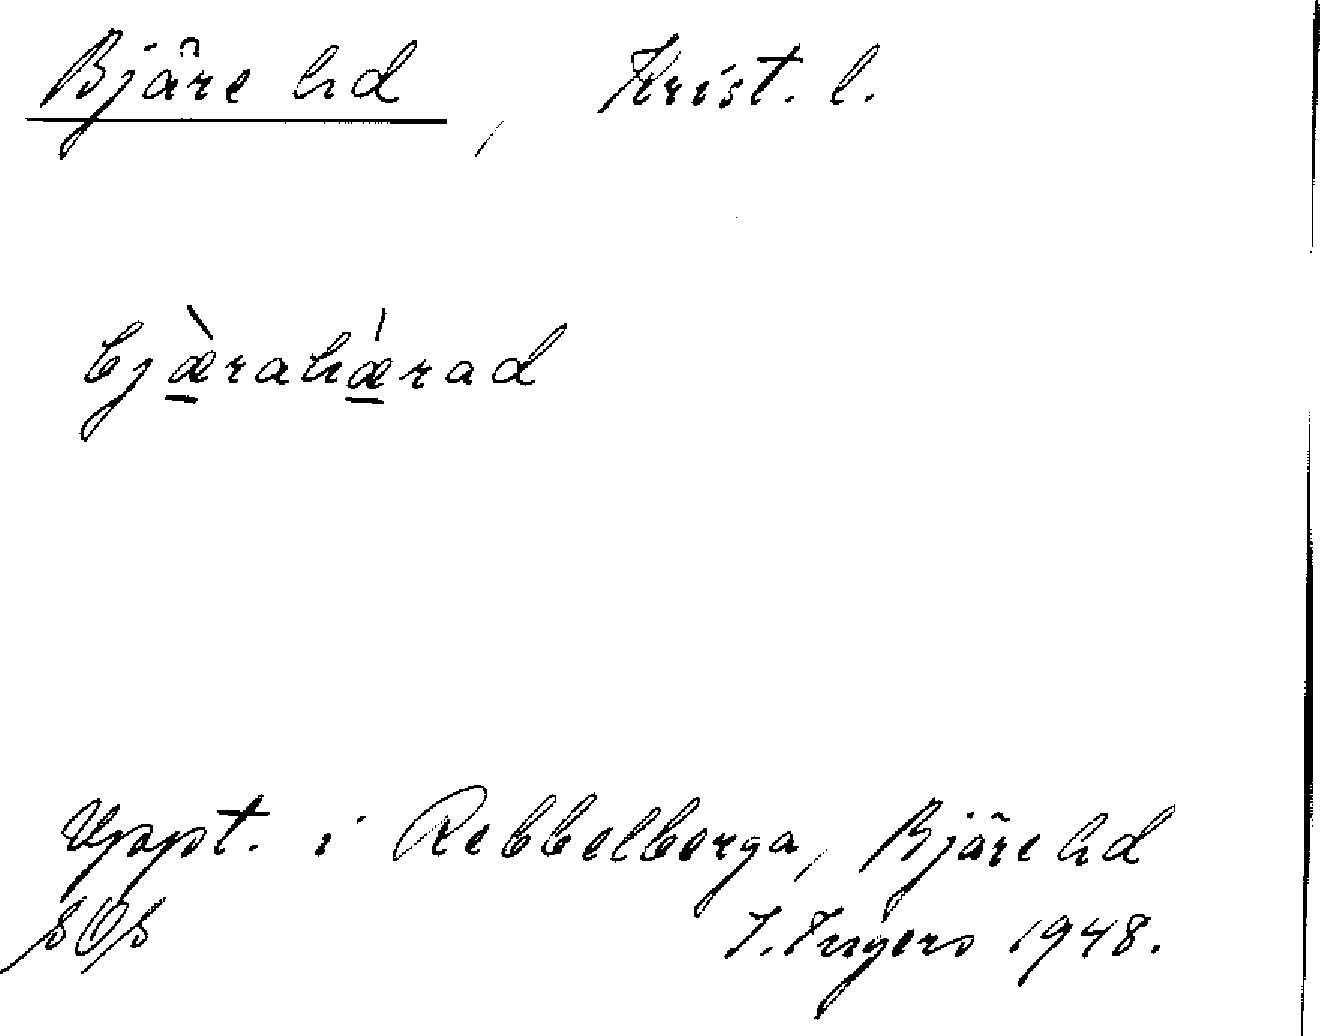 Bjäre hd, Krist. l.
bjæ̱̀rahǽ̱rad
Uppt. i Rebbelberga, Bjäre hd
SOS I. Ingers 1948.